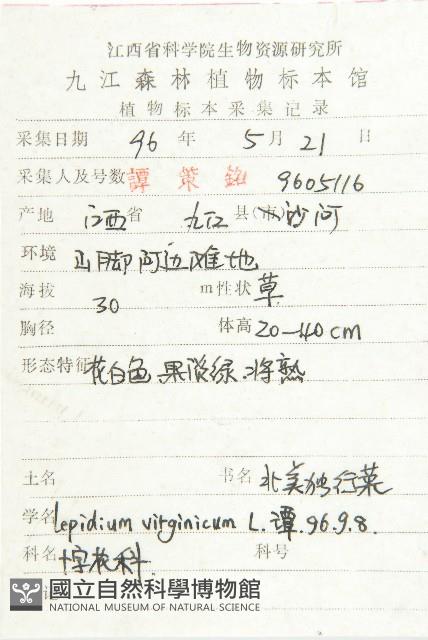 江西省科学院生物资源研究所
九江森林植物标本馆
植物标本采集记录
采集日期 96 年 5 月 21 日
采集人及号数 譚策銘 9605116
产地 江西 省 九江 县(市) 沙河
环境 山脚河边滩地
海拔 30 m 性状 草
胸径 体高 20—40cm
形态特征 花白色.果淡绿.将熟
土名 书名 北美独行菜
学名 Lepidium virginicum L. 谭.96.9.8.
科名 十字花科. 科号
國立自然科學博物館
NATIONAL MUSEUM OF NATURAL SCIENCE